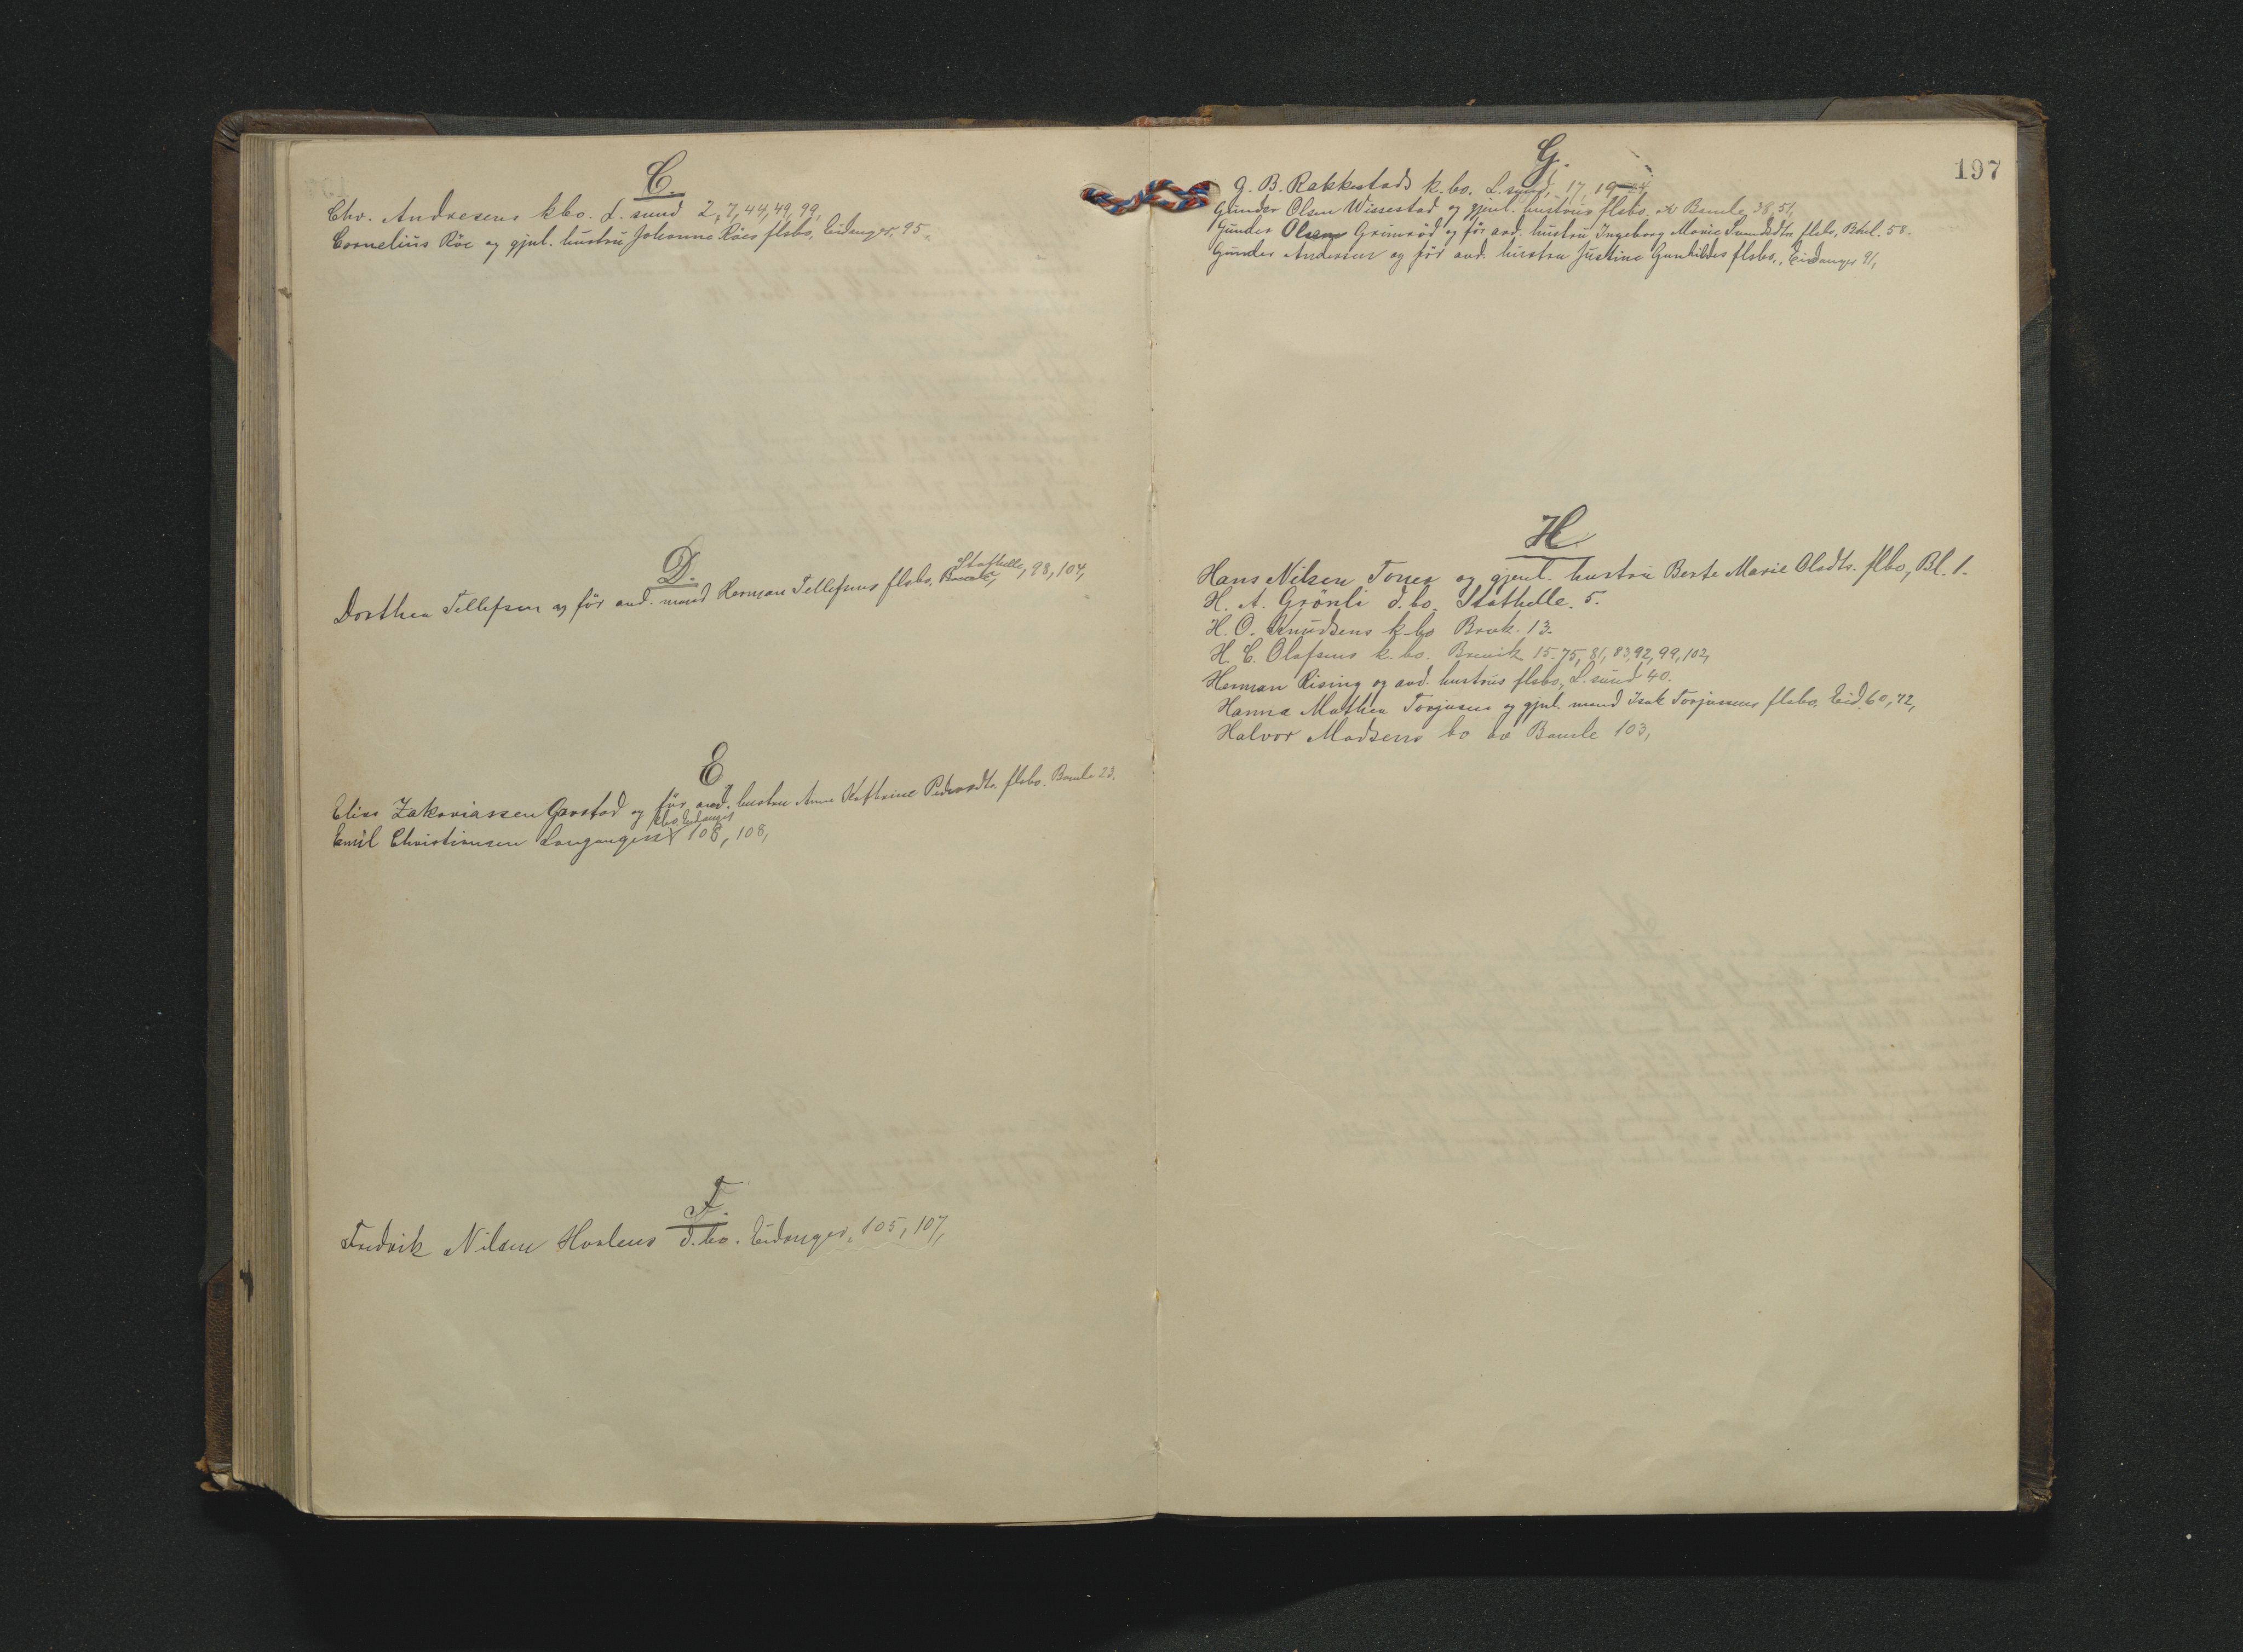 C.
Chr. Andresens kbo. L. sund 2, 7, 44, 49, 99,
Cornelius Röe og gjenl. hustru Johanne Röes flsbo, Eidanger, 95.
D.
Stathelle,
Dorthea Tellefsen og för avd. mand Herman Tellefsens flsbo. 98, 104,
E.
Elias Zakariassen Gravstad og för avd. hustru Anne Kathrine Pedersdtr. flsbo. Bamle 23.
kbo Eidanger
Emil Christiansen Langangen 108, 108,
F.
Fredrik Nilsen Hvalens d.bo. Eidanger, 105, 107,
197
G.
G. B. Rakkestads k. bo. L. sund, 17, 19
Gunder Olsen Wissestad og gjenl. hustrus flsbo. av Bamle 38, 51,
Gunder Olsen Grimröd og för avd. hustru Ingeborg Marie flsbo, 58.
Gunder Andersen og för avd. hustru Justine Gunhildes flsbo., Eidanger 91,
H.
Hans Nilsen og gjenl. hustru Berte Marie Olsdtr. flbo, Bl. 1.
H. A. Grönli d. bo. Stathelle. 5.
H. O. Knudsens k.bo 13.
H. C. Olafsens k. bo. Brevik 15. 75, 81, 83, 92, 99, 102,
Herman Rising og avd. hustrus flsbo, L. sund 40.
Hanna Mathea Torjusen og gjenl. mand Isak Torjussens flsbo. Eid. 60, 72,
Halvor Madsens bo av Bamle 103,